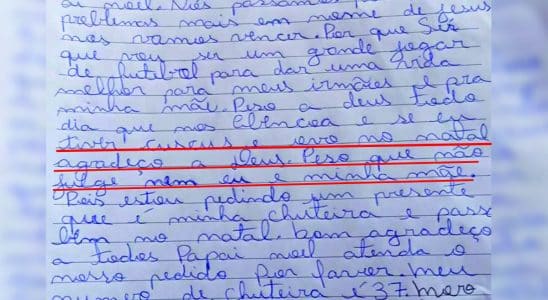 ai noel. Nós passamos p
problemas mais em nome de Jesus
nos vamos vencer. Por que Sir
que vou ser um grande jogar
de futibol para dar uma vida
melhor para meus irmães e pra
minha mãe. Peso a deus todo
dia que nos abencoa e se eu
tiver cuscus e ovo no natal
agradeço a Deus. Peso que não
julge nem eu e minha mãe.
Pois estou pedindo um presente
que é minha chuteira e pass
bem no natal. bom agradeço
a todos Papai noel atenda o
nosso pedido Por favor. Meu
numero de chuteira é 37 moro